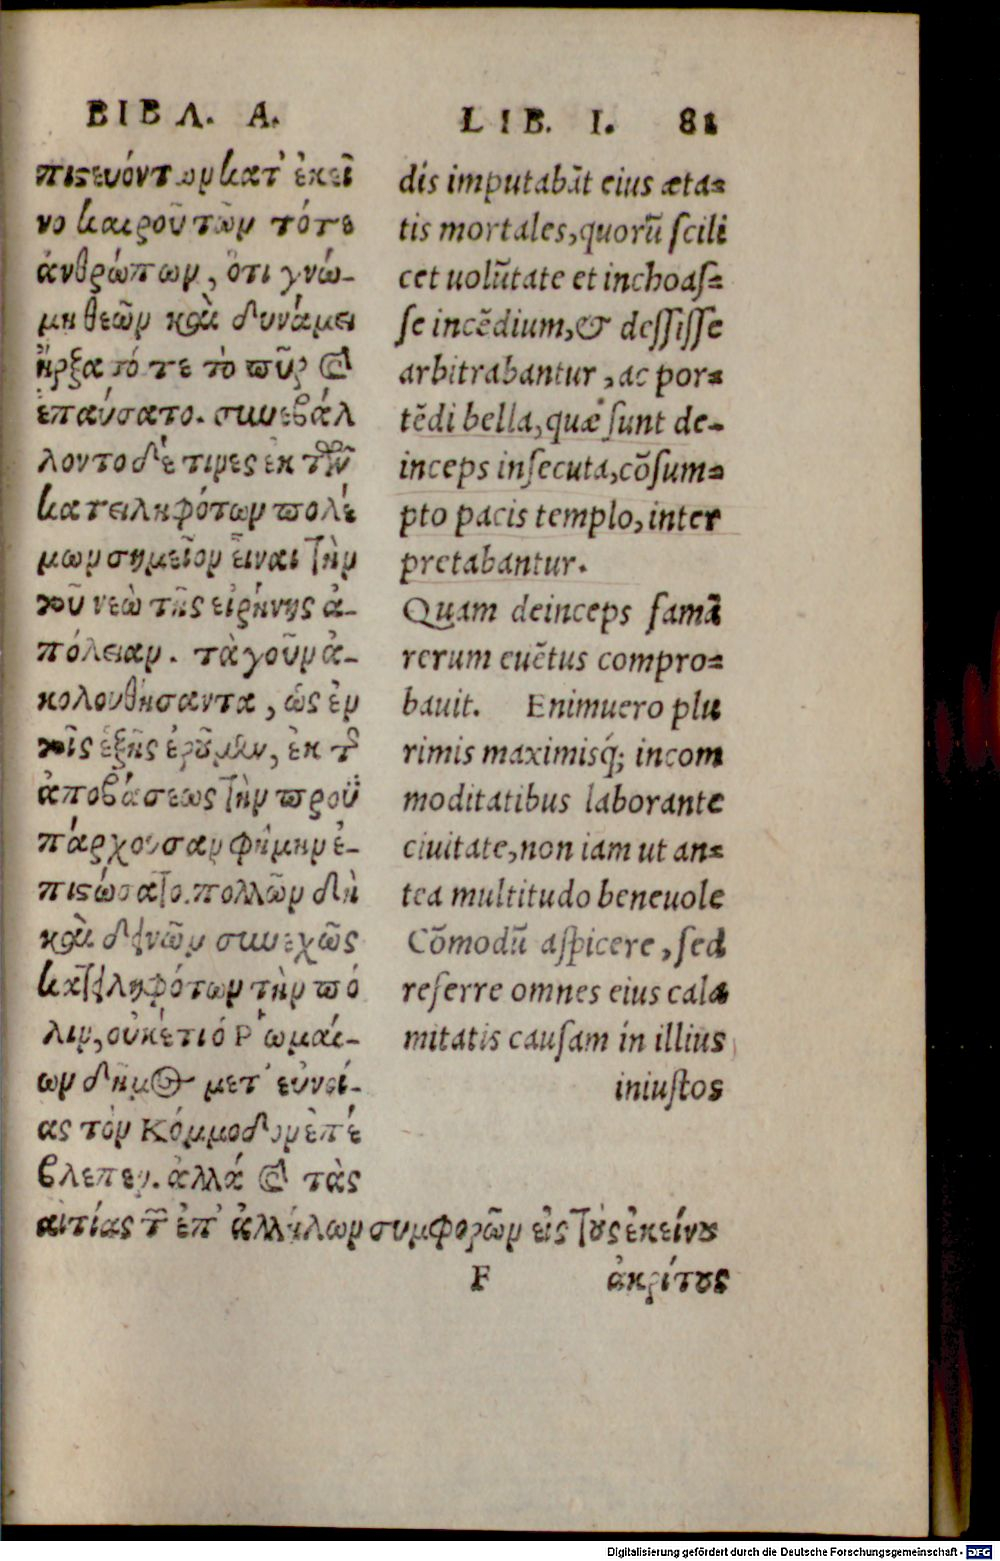 ΒΙΒΛ. Α.
πιςευόντων κατ' ἐκεῖ
νο καιροῦ τῶν τότε
ἀνθρώπων, ὅτι γνώ-
μη θεῶν καὶ δυνάμει
ἤρξατό τε τὸ πῦρ καὶ
ἐπαύσατο. συνεβάλ
λοντο δέ τινες ἐκ τῶν
κατειληφότων πολέ
μων σημεῖον εἶναι τὴν
τοῦ νεὼ τῆς εἰρήνης ἀ-
πόλειαν. τὰ γοῦν ἀ-
κολουθήσαντα, ὡς ἐν
τοῖς ἑξῆς ἐροῦμεν, ἐκ τ῀
ἀποβάσεως τὴν προϋ
πάρχουσαν φήμην ἐ-
πιςώσατο. πολλῶν δὴ
καὶ δεινῶν συνεχῶς
κατειληφότων τὴν πό
λιν, οὐκέτι ὁ Ῥωμαί-
ων δῆμος μετ' εὐνοί-
ας τὸν Κόμμοδον ἐπέ
βλεπεν. ἀλλά καὶ τὰς
αἰτίας τ῀ ἐπ' ἀλλήλων συμφορῶν εἰς τοὺς ἐκείνου
LIB. I. 81
dis imputabāt eius æta=
tis mortales, quorū scili
cet uolūtate et inchoas=
se incēdium, & dessisse
arbitrabantur, ac por=
tēdi bella, quæ sunt de-
inceps insecuta, cōsum=
pto pacis templo, inter
pretabantur.
Quam deinceps famā
rerum euētus compro=
bauit. Enimuero plu
rimis maximisq́; incom
moditatibus laborante
ciuitate, non iam ut an=
tea multitudo beneuole
Cōmodū aspicere, sed
referre omnes eius cala
mitatis causam in illius
iniustos
F ἀκρίτους
Digitalisierung gefördert durch die Deutsche Forschungsgemeinschaft - DFG